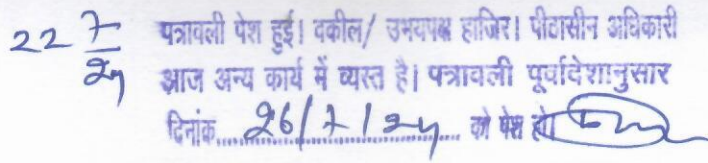 22 7/24 पत्रावली पेश हुई। वकील/ उभयपक्ष हाजिर। पीठासीन अधिकारी
आज अन्य कार्य में व्यस्त है। पत्रावली पूर्वादेशानुसार
दिनांक....26/7/24.... को पेश हो।